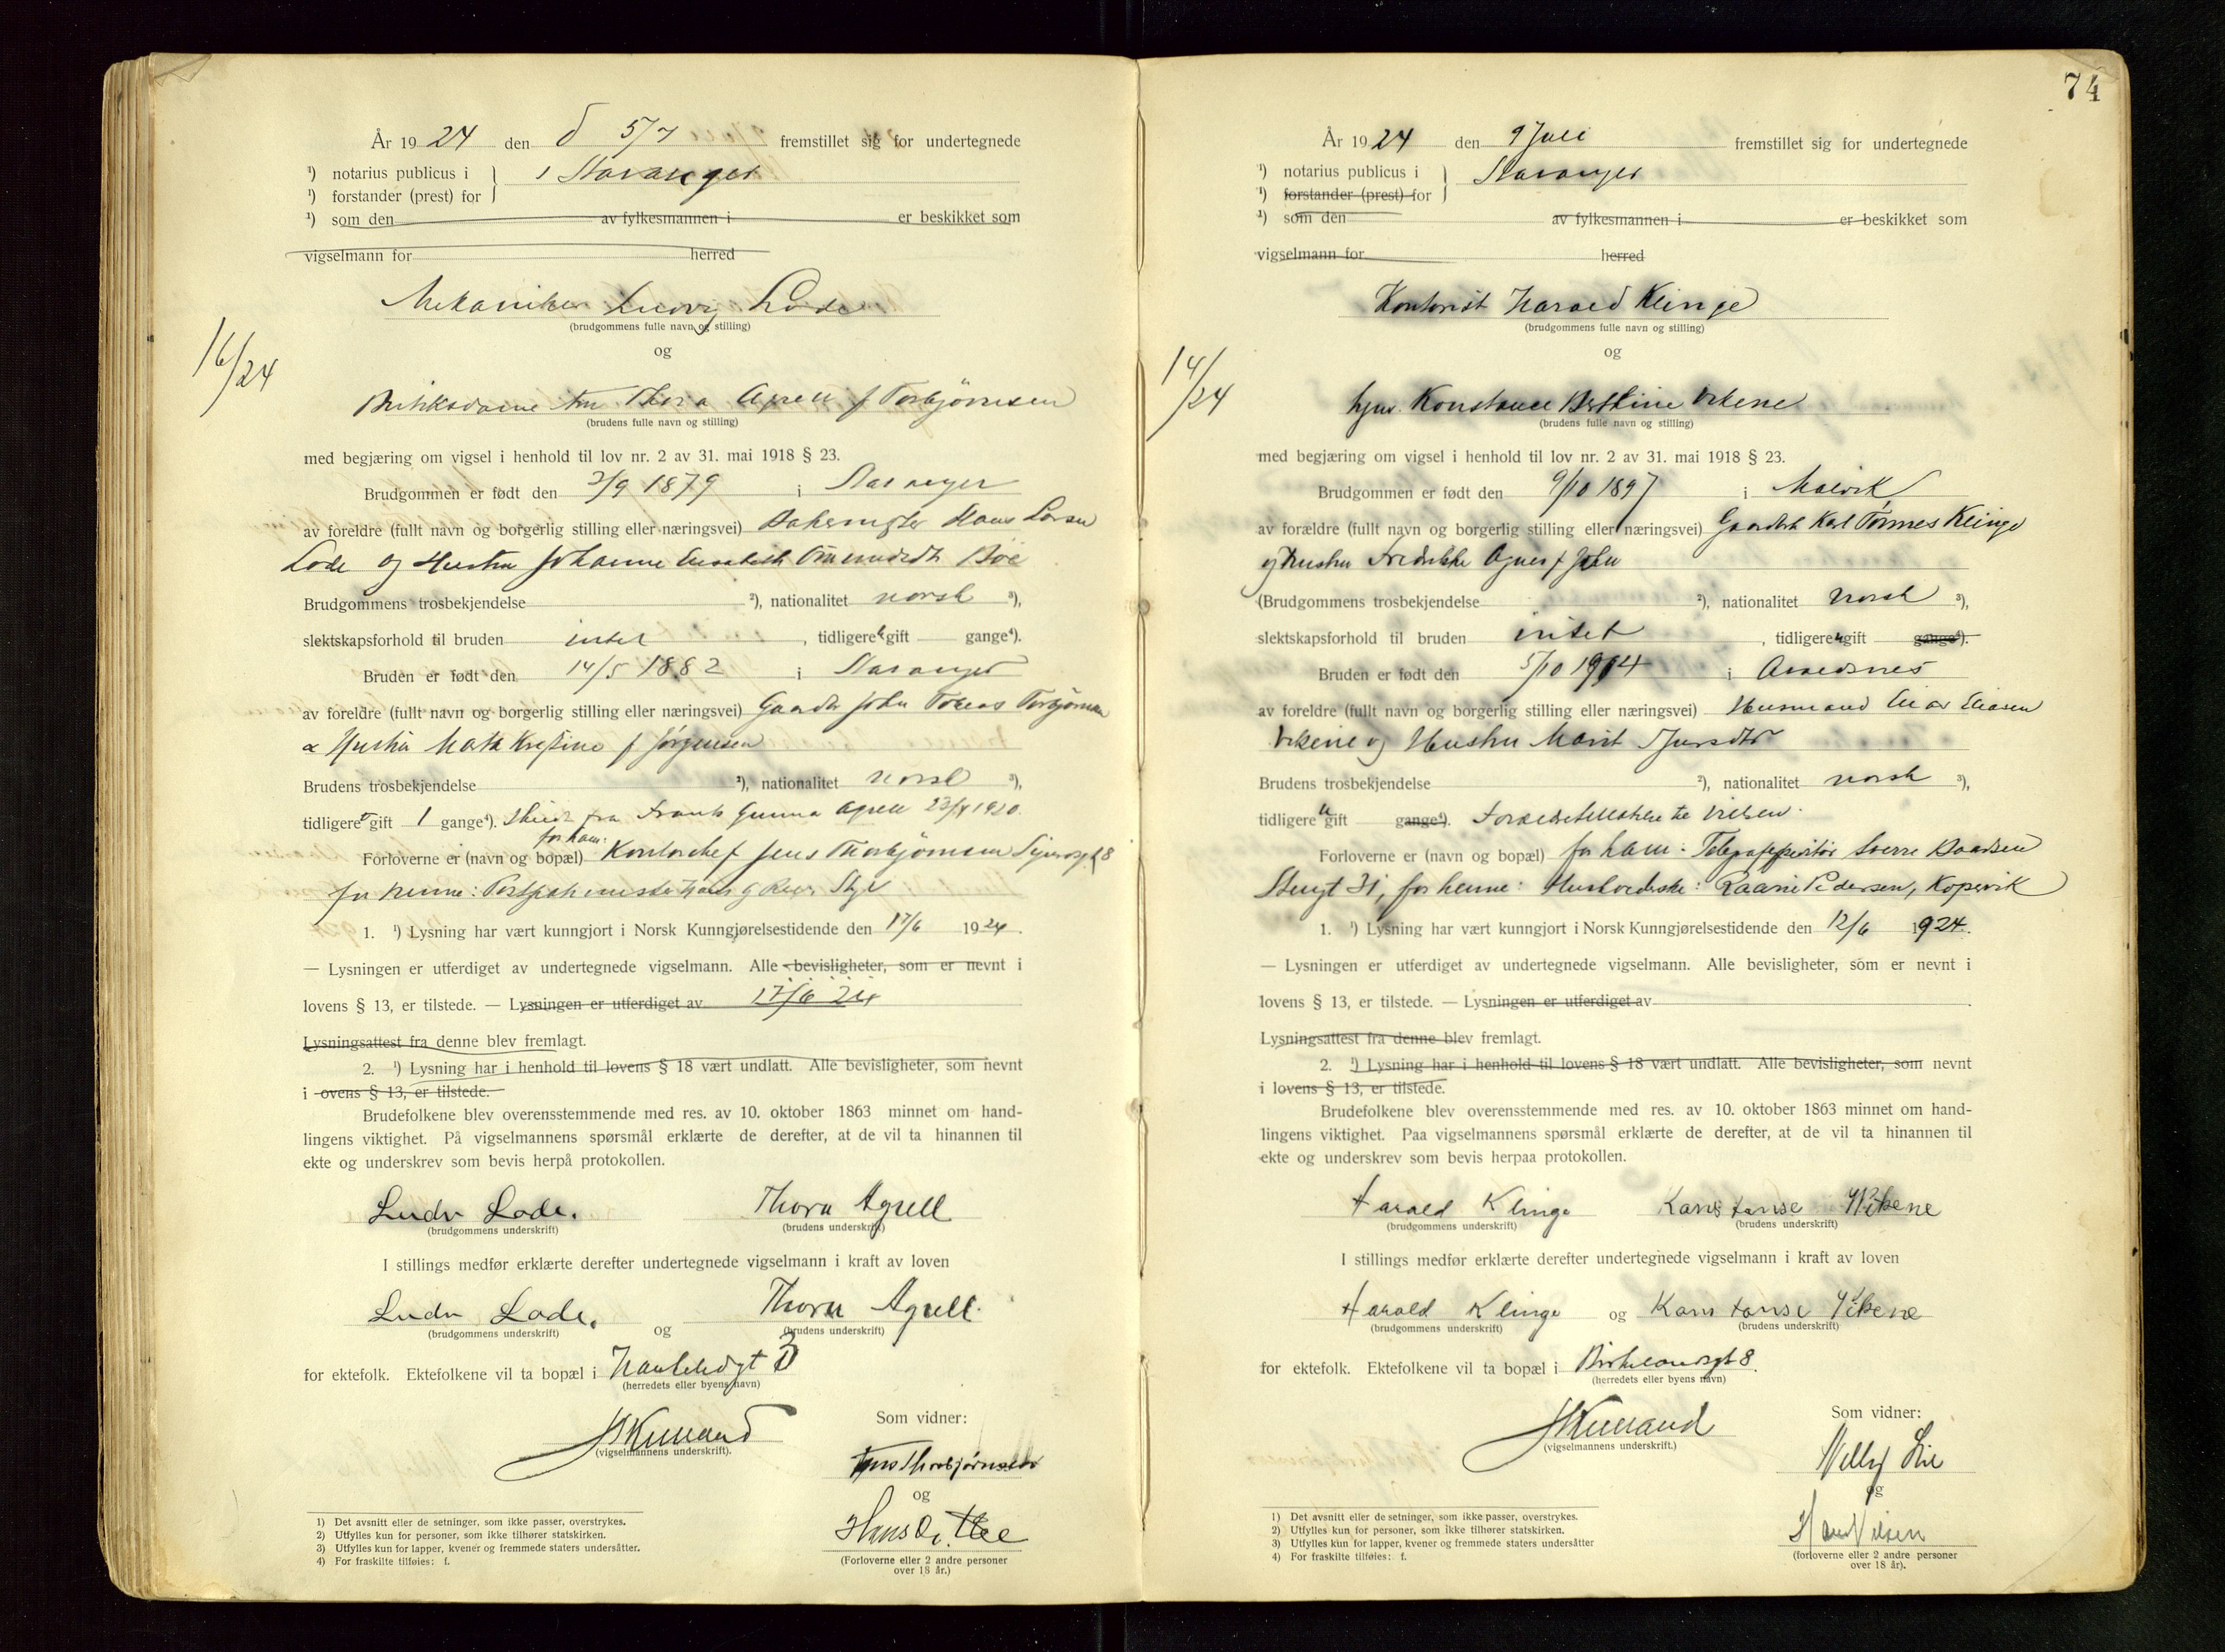 År 1924 den d 5/7 fremstillet sig for undertegnede
¹) notarius publicus i
i Stavanger
¹) forstander (prest) for
¹) som den av fylkesmannen i er beskikket som
vigselmann for herred
Mekaniker Ludvig Lode
(brudgommens fulle navn og stilling)
og
16/24
Butiksdame Thora Agrell f Torbjörnsen
(brudens fulle navn og stilling)
med begjæring om vigsel i henhold til lov nr. 2 av 31. mai 1918 § 23.
Brudgommen er født den 3/9 1879 i Stavanger
av foreldre (fullt navn og borgerlig stilling eller næringsvei) Hans Larsen
Lode og Hustru Johanne Elisabeth Bøe
Brudgommens trosbekjendelse ²), nationalitet norsk ³),
slektskapsforhold til bruden intet , tidligere gift gange⁴).
Bruden er født den 14/5 1882 i Stavanger
av foreldre (fullt navn og borgerlig stilling eller næringsvei) John Tobias Torbjörnsen
Hustru Kristine f Jørgensen
Brudens trosbekjendelse ²), nationalitet norsk ³),
tidligere gift 1 gange⁴). Skilt fra Frants Gunnar Agrell 23/4 1920.
for ham:
Forloverne er (navn og bopæl) Kontorchef Jens Thorbjörnsen
for henne:
1. ¹) Lysning har vært kunngjort i Norsk Kunngjørelsestidende den 17/6 1924.
— Lysningen er utferdiget av undertegnede vigselmann. Alle bevisligheter, som er nevnt i
lovens § 13, er tilstede. — Lysningen er utferdiget av 17/6 24
Lysningsattest fra denne blev fremlagt.
2. ¹) Lysning har i henhold til lovens § 18 vært undlatt. Alle bevisligheter, som nevnt
i ovens § 13, er tilstede.
Brudefolkene blev overensstemmende med res. av 10. oktober 1863 minnet om hand-
lingens viktighet. På vigselmannens spørsmål erklærte de derefter, at de vil ta hinannen til
ekte og underskrev som bevis herpå protokollen.
Ludv Lode. Thora Agrell
(brudgommens underskrift) (brudens underskrift)
I stillings medfør erklærte derefter undertegnede vigselmann i kraft av loven
Ludv Lode. og Thora Agrell.
(brudgommens underskrift) (brudens underskrift)
for ektefolk. Ektefolkene vil ta bopæl i
(herredets eller byens navn)
Som vidner:
(vigselmannens underskrift).
Jens Thorbjørnsen
og
Hans
(Forloverne eller 2 andre personer
over 18 år.)
1) Det avsnitt eller de setninger, som ikke passer, overstrykes.
2) Utfylles kun for personer, som ikke tilhører statskirken.
3) Utfylles kun for lapper, kvener og fremmede staters undersåtter.
4) For fraskilte tilføies: f.
74
År 1924 den 9 Juli fremstillet sig for undertegnede
¹) notarius publicus i
Stavanger
¹) forstander (prest) for
¹) som den av fylkesmannen i er beskikket som
vigselmann for herred
Kontorist Harald Klinge
(brudgommens fulle navn og stilling)
og
14/24
Konstance Berthine Vikene
(brudens fulle navn og stilling)
med begjæring om vigsel i henhold til lov nr. 2 av 31. mai 1918 § 23.
Brudgommen er født den 9/10 1897 i Malvik
av forældre (fullt navn og borgerlig stilling eller næringsvei) Karl Tønnes Klinge
og Hustru Fredrikke Agnes f
(Brudgommens trosbekjendelse ²), nationalitet norsk ³),
slektskapsforhold til bruden intet , tidligere u gift gange⁴).
Bruden er født den 5/10 1904 i
av foreldre (fullt navn og borgerlig stilling eller næringsvei) Husmand Elias Eliasen
Vikene og Hustru Marit
Brudens trosbekjendelse ²), nationalitet norsk ³),
tidligere u gift gange⁴).
Forloverne er (navn og bopæl) for ham: Sverre
31, for henne: Pedersen, Kopervik
1. ¹) Lysning har vært kunngjort i Norsk Kunngjørelsestidende den 12/6 1924.
— Lysningen er utferdiget av undertegnede vigselmann. Alle bevisligheter, som er nevnt i
lovens § 13, er tilstede. — Lysningen er utferdiget av
Lysningsattest fra denne blev fremlagt.
2. ¹) Lysning har i henhold til lovens § 18 vært undlatt. Alle bevisligheter, som nevnt
i lovens § 13, er tilstede.
Brudefolkene blev overensstemmende med res. av 10. oktober 1863 minnet om hand-
lingens viktighet. Paa vigselmannens spørsmål erklærte de derefter, at de vil ta hinannen til
ekte og underskrev som bevis herpaa protokollen.
Harald Klinge Konstanse Vikene
(brudgommens underskrift) (brudens underskrift)
I stillings medfør erklærte derefter undertegnede vigselmann i kraft av loven
Harald Klinge og Konstanse Vikene
(brudgommens underskrift) (brudens underskrift)
for ektefolk. Ektefolkene vil ta bopæl i Birkelandsgt 8.
(herredets eller byens navn)
Som vidner:
(vigselmannens underskrift.)
Willy Lie
og
(forloverne eller 2 andre personer
over 18 år).
1) Det avsnitt eller de setninger, som ikke passer, overstrykes.
2) Utfylles kun for personer, som ikke tilhører statskirken.
3) Utfylles kun for lapper, kvener og fremmede staters undersåtter
4) For fraskilte tilføies: f.